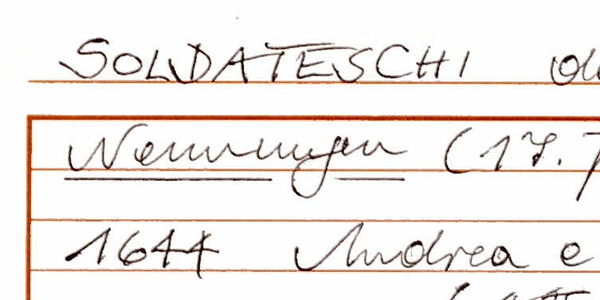 SOLDATESCHI
Nennungen (17.
1644 Andrea e